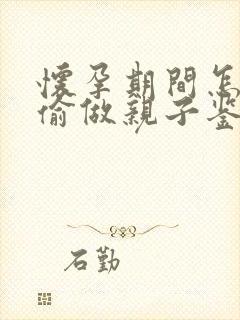 懷孕期間怎
偷做親子鉴
石勤